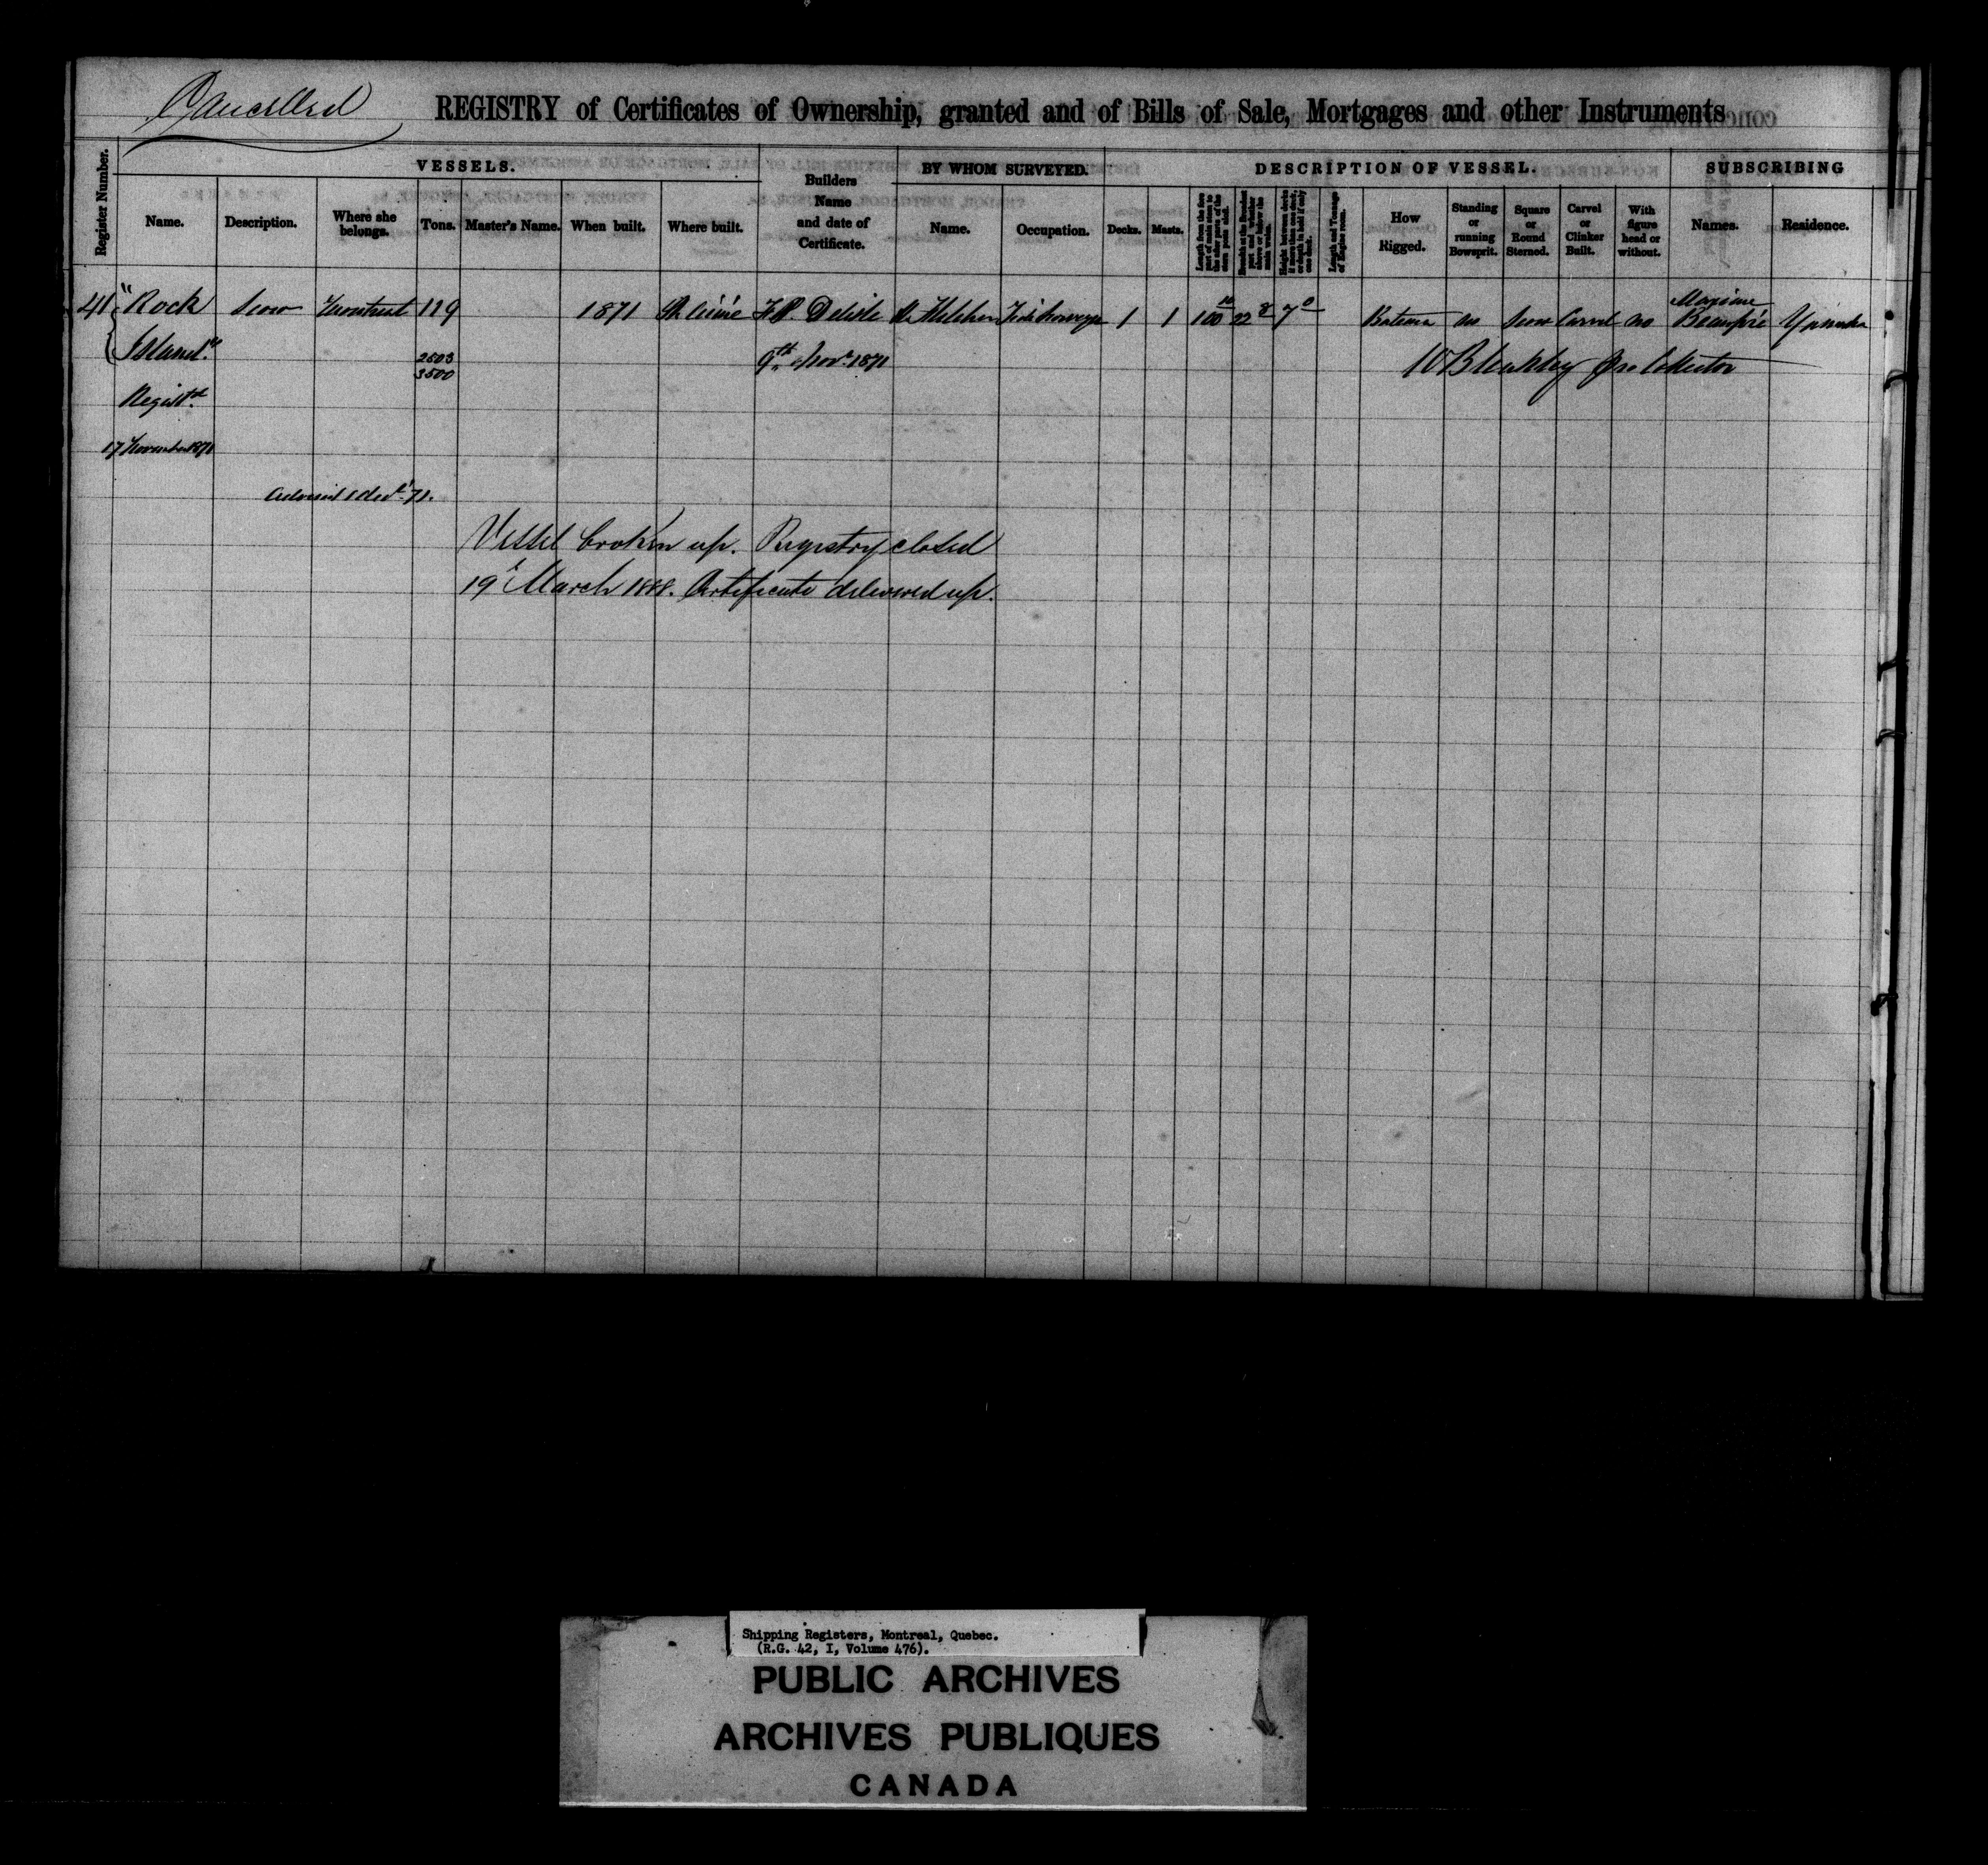 Cancelled
REGISTRY of Certificates of Ownership, granted and of Bills of Sale, Mortgages and other Instruments
Register Number.
VESSELS.
Name.
Description.
Where she belongs.
Tons.
Master's Name.
When built.
Where built.
Builders Name and date of Certificate.
BY WHOM SURVEYED.
Name.
Occupation.
DESCRIPTION OF VESSEL.
Decks.
Masts.
How Rigged.
Standing or running Bowsprit.
Square or Round Sterned.
Carvel or Clinker Built.
With figure head or without.
SUBSCRIBING
Names.
Residence.
41 "Rock Scow Montreal 119 1871 F.P. Delisle 1 1 100 10 22 8 7 0 no Scow Carvel no Maxime Yamaska
Island"
2503
3500
9th Novr 1871
W Bleakley Pro Collector
Registd
17 November 1871
Vessel broken up. Registry closed
19 March 1888. Certificate delivered up.
Shipping Registers, Montreal, Quebec.
(R.G. 42, I, Volume 476).
PUBLIC ARCHIVES
ARCHIVES PUBLIQUES
CANADA